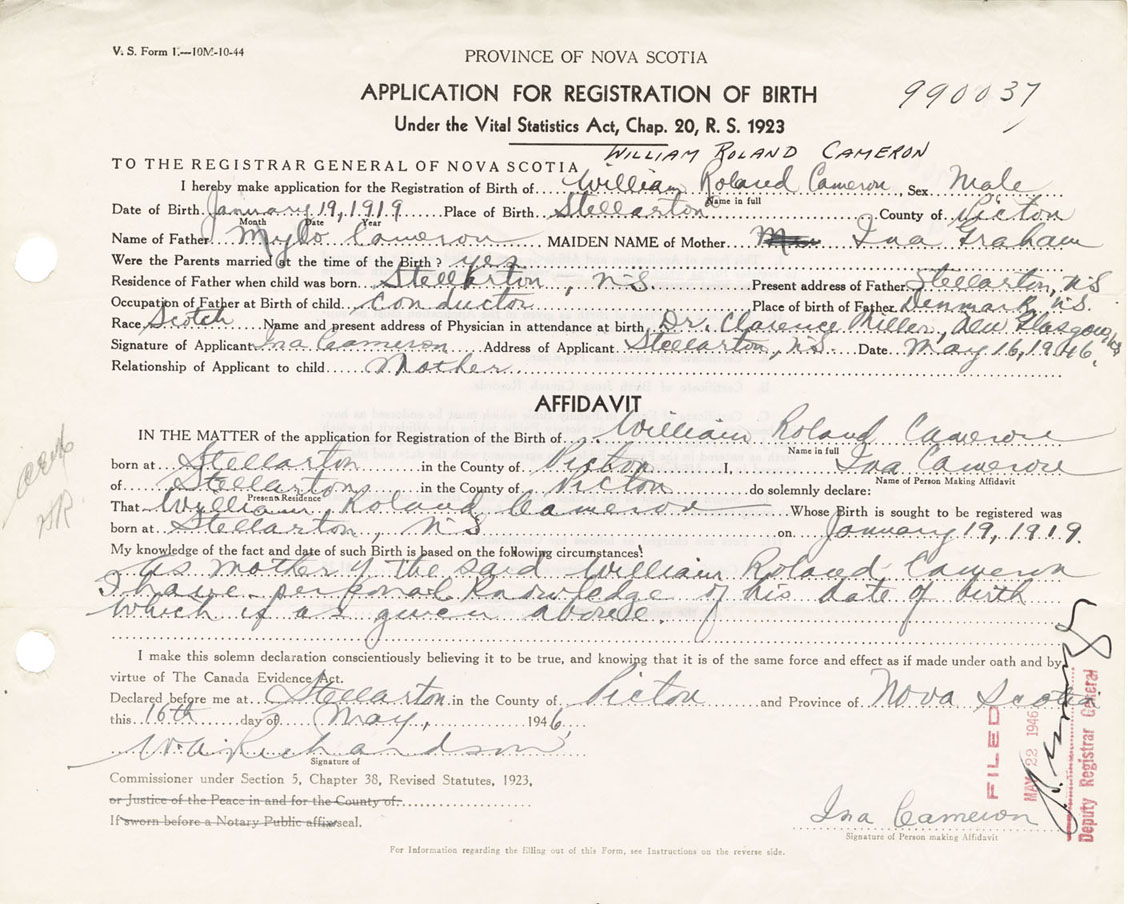 V. S. Form 1.—10M-10-44
PROVINCE OF NOVA SCOTIA
APPLICATION FOR REGISTRATION OF BIRTH
990037
Under the Vital Statistics Act, Chap. 20, R. S. 1923
WILLIAM ROLAND CAMERON
TO THE REGISTRAR GENERAL OF NOVA SCOTIA
I hereby make application for the Registration of Birth of William Roland Cameron Sex Male
Name in full
Date of Birth January 19, 1919 Place of Birth Stellarton County of Picton
Month Date Year
Name of Father Mylo Cameron MAIDEN NAME of Mother Ina Graham
Were the Parents married at the time of the Birth? yes
Residence of Father when child was born Stellarton, N.S. Present address of Father Stellarton, N.S.
Occupation of Father at Birth of child Conductor Place of birth of Father Denmark, N.S.
Race Scotch Name and present address of Physician in attendance at birth Dr. Clarence Miller, New Glasgow, N.S.
Signature of Applicant Ina Cameron Address of Applicant Stellarton, N.S. Date May 16, 1946.
Relationship of Applicant to child Mother
AFFIDAVIT
IN THE MATTER of the application for Registration of the Birth of William Roland Cameron
Name in full
born at Stellarton in the County of Picton I, Ina Cameron
Name of Person Making Affidavit
of Stellarton in the County of Picton do solemnly declare:
Present Residence
That William Roland Cameron Whose Birth is sought to be registered was
born at Stellarton, N.S. on January 19, 1919.
My knowledge of the fact and date of such Birth is based on the following circumstances:
As mother of the said William Roland Cameron
I have personal knowledge of his date of birth
which is as given above.
I make this solemn declaration conscientiously believing it to be true, and knowing that it is of the same force and effect as if made under oath and by
virtue of The Canada Evidence Act.
Declared before me at Stellarton in the County of Picton and Province of Nova Scotia
this 16th day of May, 1946,
W. A. Richardson
Signature of
Commissioner under Section 5, Chapter 38, Revised Statutes, 1923,
or Justice of the Peace in and for the County of
If sworn before a Notary Public affix seal.
Ina Cameron
Signature of Person making Affidavit
FILED
MAY 22 1946
Deputy Registrar General
For Information regarding the filling out of this Form, see Instructions on the reverse side.